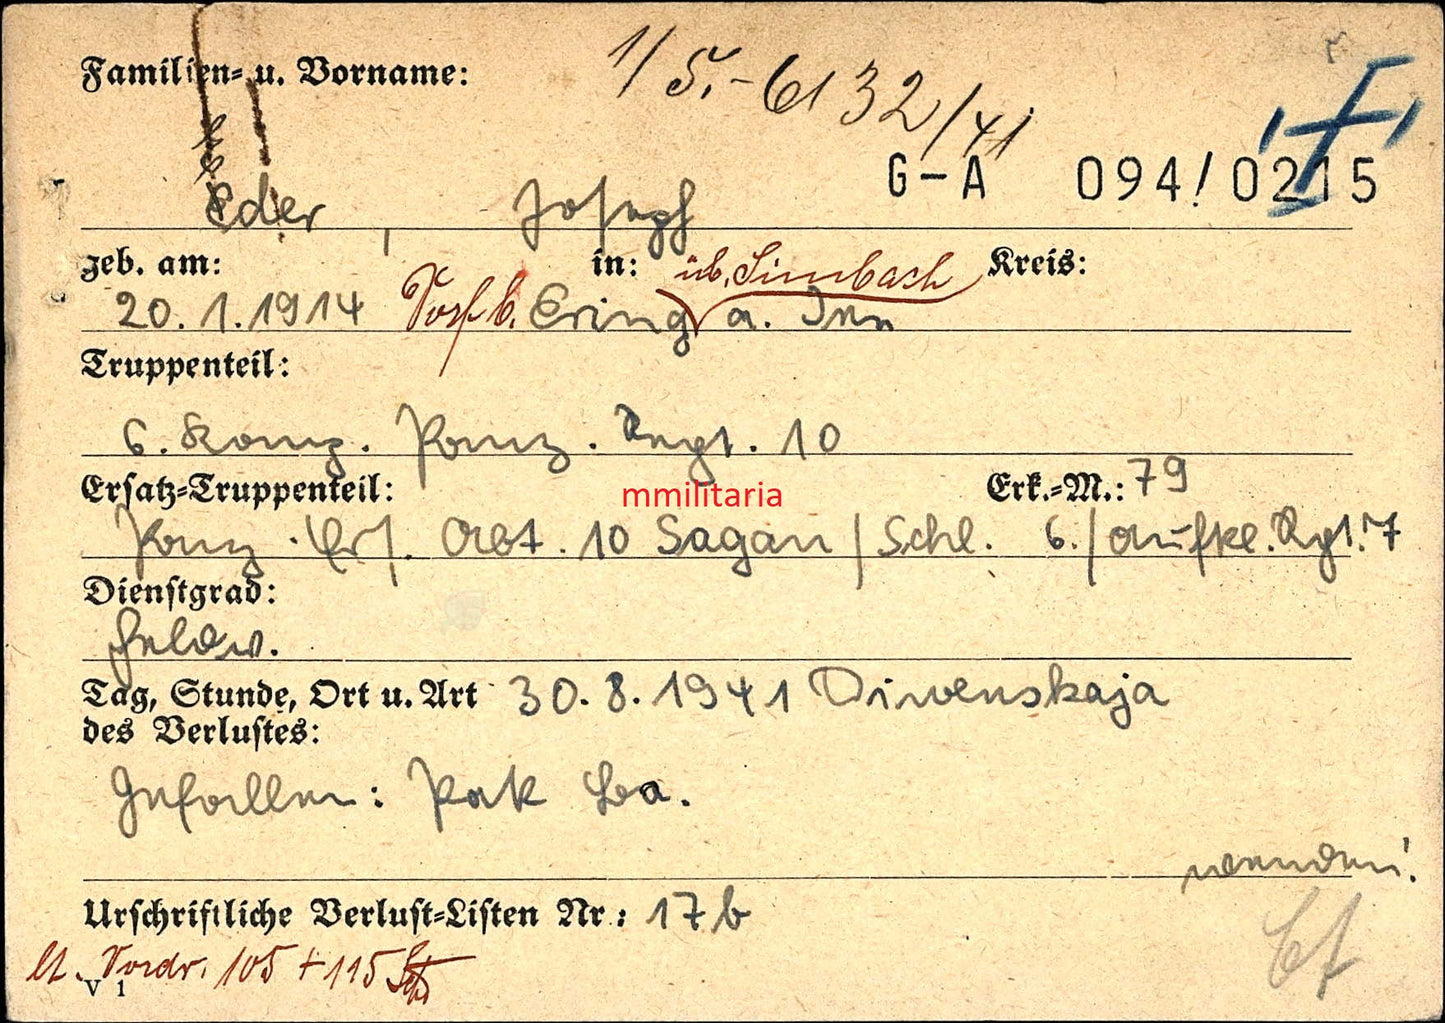 Familien- u. Vorname:
1/5.-6132/41
G-A 094/0215
Eder, Joseph
geb. am: in: üb. Simbach Kreis:
20.1.1914 Post b. Ering a. Inn
Truppenteil:
6. Komp. Panz. Regt. 10
Ersatz-Truppenteil: Erk.-M.: 79
mmilitaria
Panz. Ers. Abt. 10 Sagan / Schl. 6./Aufkl. Rgt. 7
Dienstgrad:
Feldw.
Tag, Stunde, Ort u. Art 30.8.1941 Diwenskaja
des Verlustes:
Gefallen: Pak
wenden!
Urschriftliche Verlust-Listen Nr.: 17b
lt. Vordr. 105 + 115
V 1